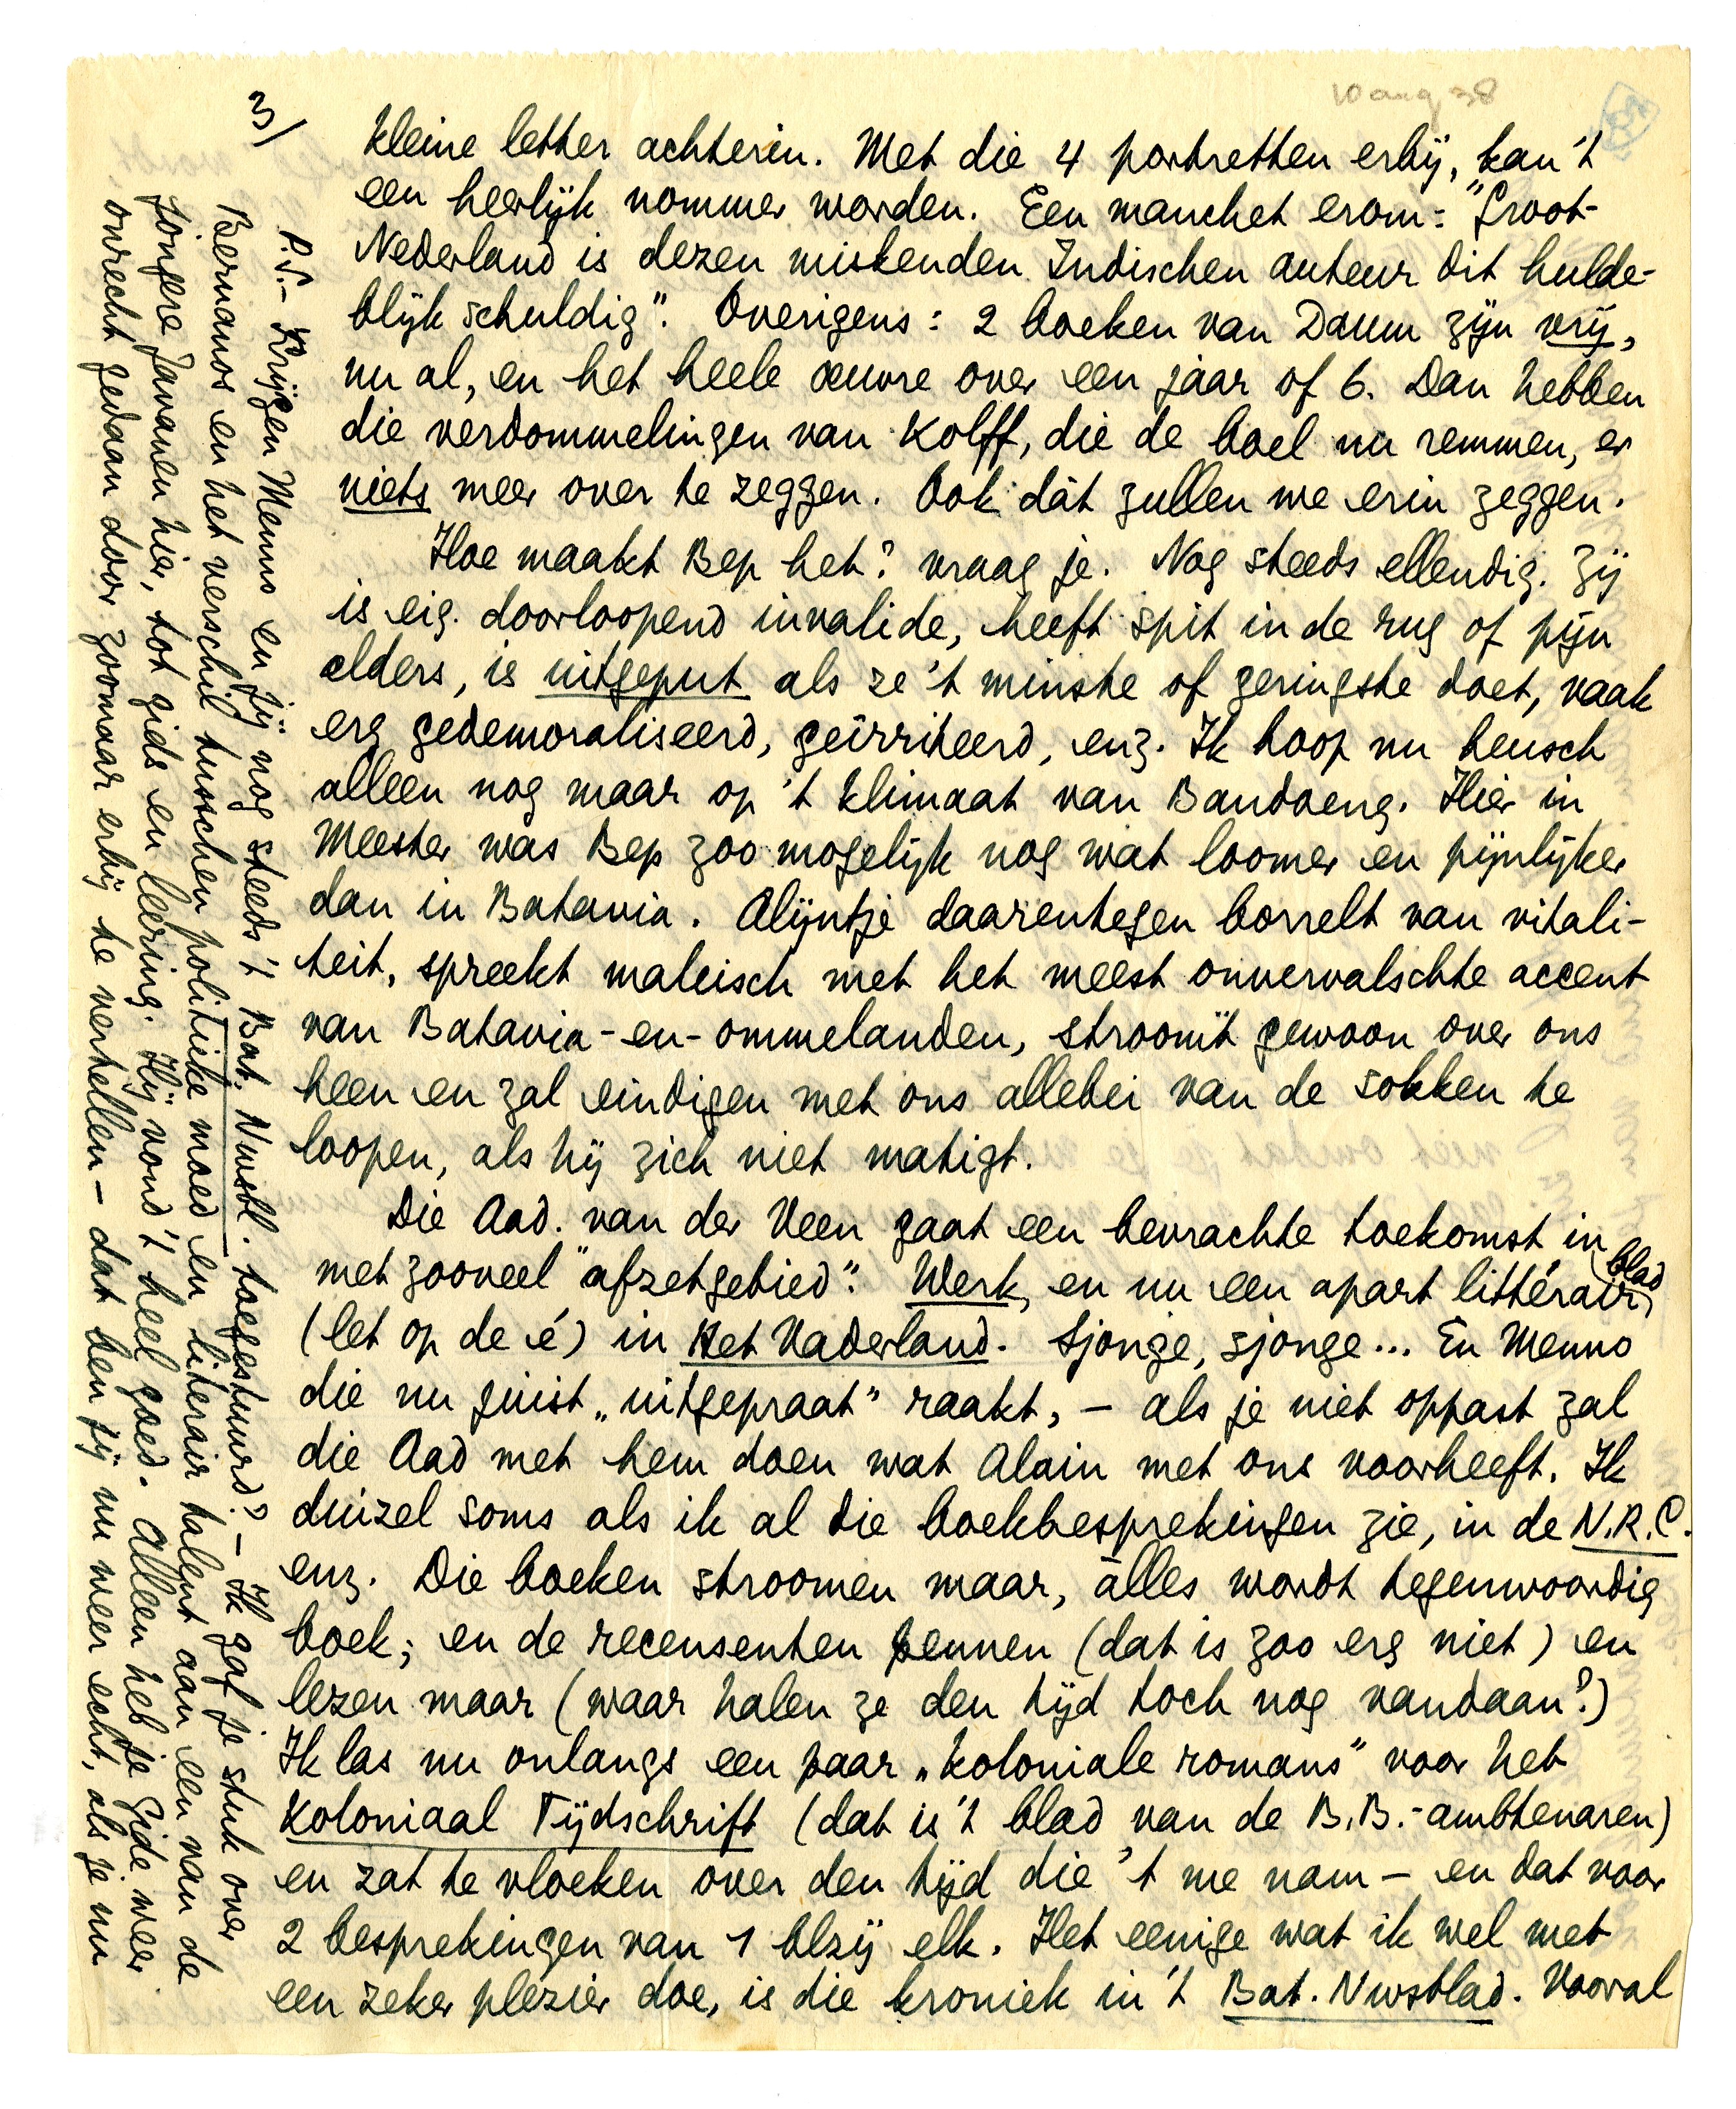 10 aug 38
3/
kleine letter achterin. Met die 4 portretten erbij, kan 't
een heerlijk nommer worden. Een manchet erom: "Groot-
Nederland is dezen miskenden Indischen auteur dit hulde-
blijk schuldig". Overigens: 2 boeken van Daum zijn vrij,
nu al, en het heele oeuvre over een jaar of 6. Dan hebben
die verdommelingen van Kolff, die de boel nu remmen, er
niets meer over te zeggen. Ook dàt zullen we erin zeggen.
Hoe maakt Bep het? vraag je. Nog steeds ellendig. Zij
is eig. doorloopend invalide, heeft spit in de rug of pijn
elders, is uitgeput als ze 't minste of geringste doet, vaak
erg gedemoraliseerd, geïrriteerd, enz. Ik hoop nu heusch
alleen nog maar op 't klimaat van Bandoeng. Hier in
Meester was Bep zoo mogelijk nog wat loomer en pijnlijker
dan in Batavia. Alijntje daarentegen borrelt van vitali-
teit, spreekt maleisch met het meest onvervalschte accent
van Batavia-en-ommelanden, stroomt gewoon over ons
heen en zal eindigen met ons allebei van de sokken te
loopen, als hij zich niet matigt.
Die Aad. van der Veen gaat een bevrachte toekomst in
met zooveel "afzetgebied". Werk, en nu een apart littérair blad
(let op de é) in Het Vaderland. Sjonge, sjonge... En Menno
die nu juist „uitgepraat” raakt, – als je niet oppast zal
die Aad met hem doen wat Alain met ons voorheeft. Ik
duizel soms als ik al die boekbesprekingen zie, in de N.R.C.
enz. Die boeken stroomen maar, àlles wordt tegenwoordig
boek; en de recensenten pennen (dat is zoo erg niet) en
lezen maar (waar halen ze den tijd toch nog vandaan?)
Ik las nu onlangs een paar „koloniale romans” voor het
Koloniaal Tijdschrift (dat is 't blad van de B.B.-ambtenaren)
en zat te vloeken over den tijd die 't me nam – en dat voor
2 besprekingen van 1 blzij elk. Het eenige wat ik wel met
een zeker plezier doe, is die kroniek in 't Bat. Nwsblad. Vooral
P.S. – Krijgen Menno en jij nog steeds 't Bat. Nwsbl. toegestuurd? – Ik gaf je stuk over
Bernanos en het verschil tusschen politieke moed en literair talent aan een van de
jongere Javanen hier, tot gids en leering. Hij vond 't heel goed. Alleen heb je Gide weer
onrecht gedaan door zoomaar erbij te vertellen – dat ben jij nu weer echt, als je nu